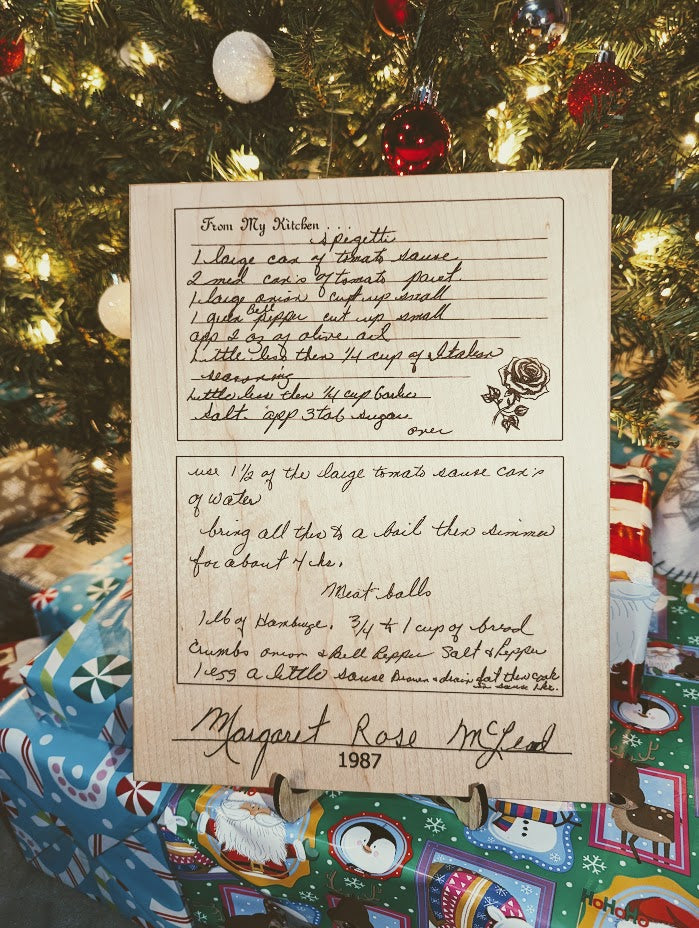 From My Kitchen...
spigetti
1 large can of tomato sause
2 med can's of tomato paist
1 large onion cut up small
1 green Bell pepper cut up small
app 2 oz of olive oil
Little less then 1/4 cup of Italian
seasoning
Little less then 1/4 cup Garlic
Salt. app 3 tab sugar
over
use 1 1/2 of the large tomato sause can's
of water
bring all this to a boil then simmer
for about 4 hr.
Meat balls
1 lb of Hamburge. 3/4 to 1 cup of bread
Crumbs onion & Bell Pepper Salt & Pepper
1 egg a little sause Brown & drain fat then cook
in sause 1 hr.
Margaret Rose McLeod
1987
HoHoHo